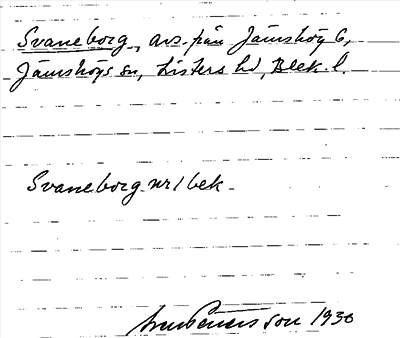 Svaneborg, avs. från Jämshög 6,
Jämshögs sn, Listers hd, Blek. l.
Svaneborg nr 1 bek.
1930